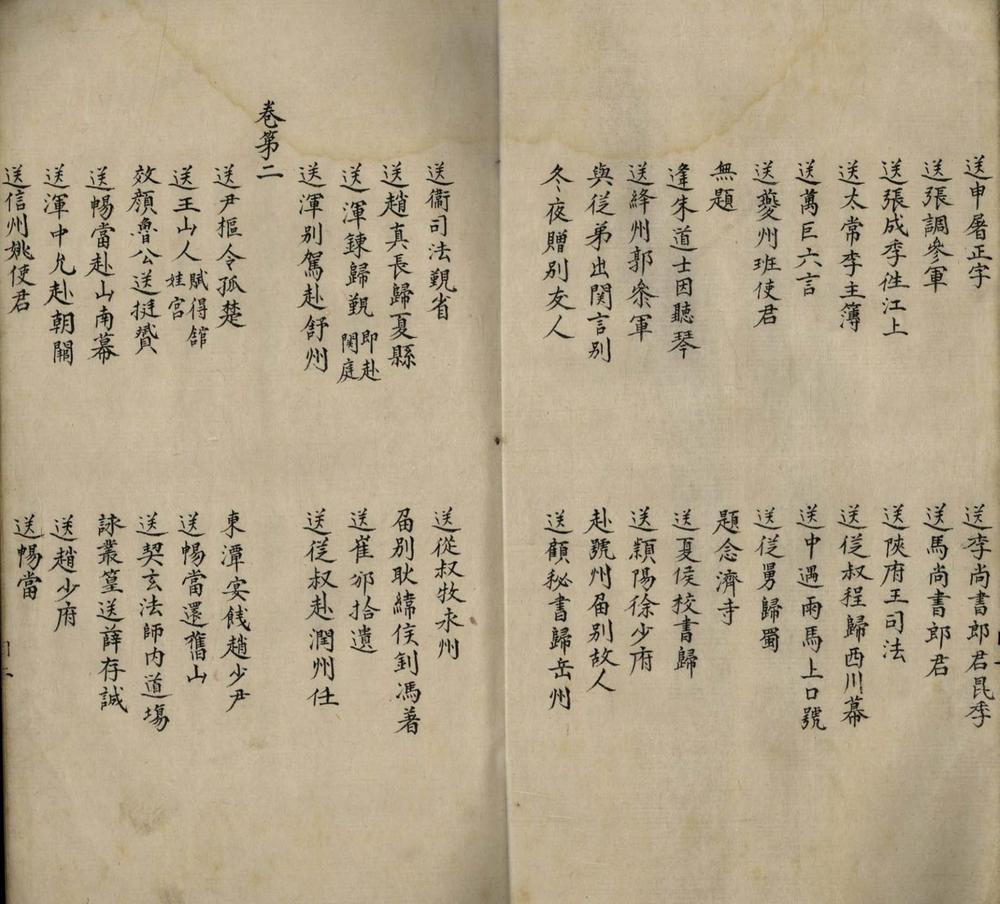 送申屠正字
送李尚書郎君昆季
送張調參軍
送馬尚書郎君
送張成季往江上
送陝府王司法
送太常李主簿
送從叔程歸西川幕
送萬巨六言
送中遇雨馬上口號
送夔州班使君
送從舅歸蜀
無題
題念濟寺
逢朱道士因聽琴
送夏侯校書歸
送絳州郭叅軍
送潁陽徐少府
與從弟出関言別
赴虢州留別故人
冬夜贈別友人
送顧秘書歸岳州
送衛司法覲省
送從叔牧永州
送趙真長歸夏縣
留別耿緯侯釗馮著
送渾鍊歸覲 即赴闕庭
送崔邠拾遺
送渾別駕赴舒州
送從叔赴潤州任
卷第二
送尹樞令孤楚
東潭安餞趙少尹
送王山人 賦得舘娃宮
送暢當還舊山
效顏魯公送挺贇
送契玄法師内道場
送暢當赴山南幕
詠叢篁送薛存誠
送渾中允赴朝闕
送趙少府
送信州姚使君
送暢當